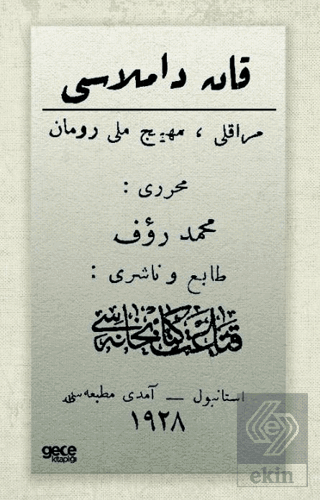 قان داملاسی
مراقلی ، مهیج ملی رومان
محرری :
محمد رؤف
طابع و ناشری :
قناعت كتابخانه‌سی
استانبول — آمدی مطبعه‌سی
١٩٢٨
gece
kitaplığı
ekin